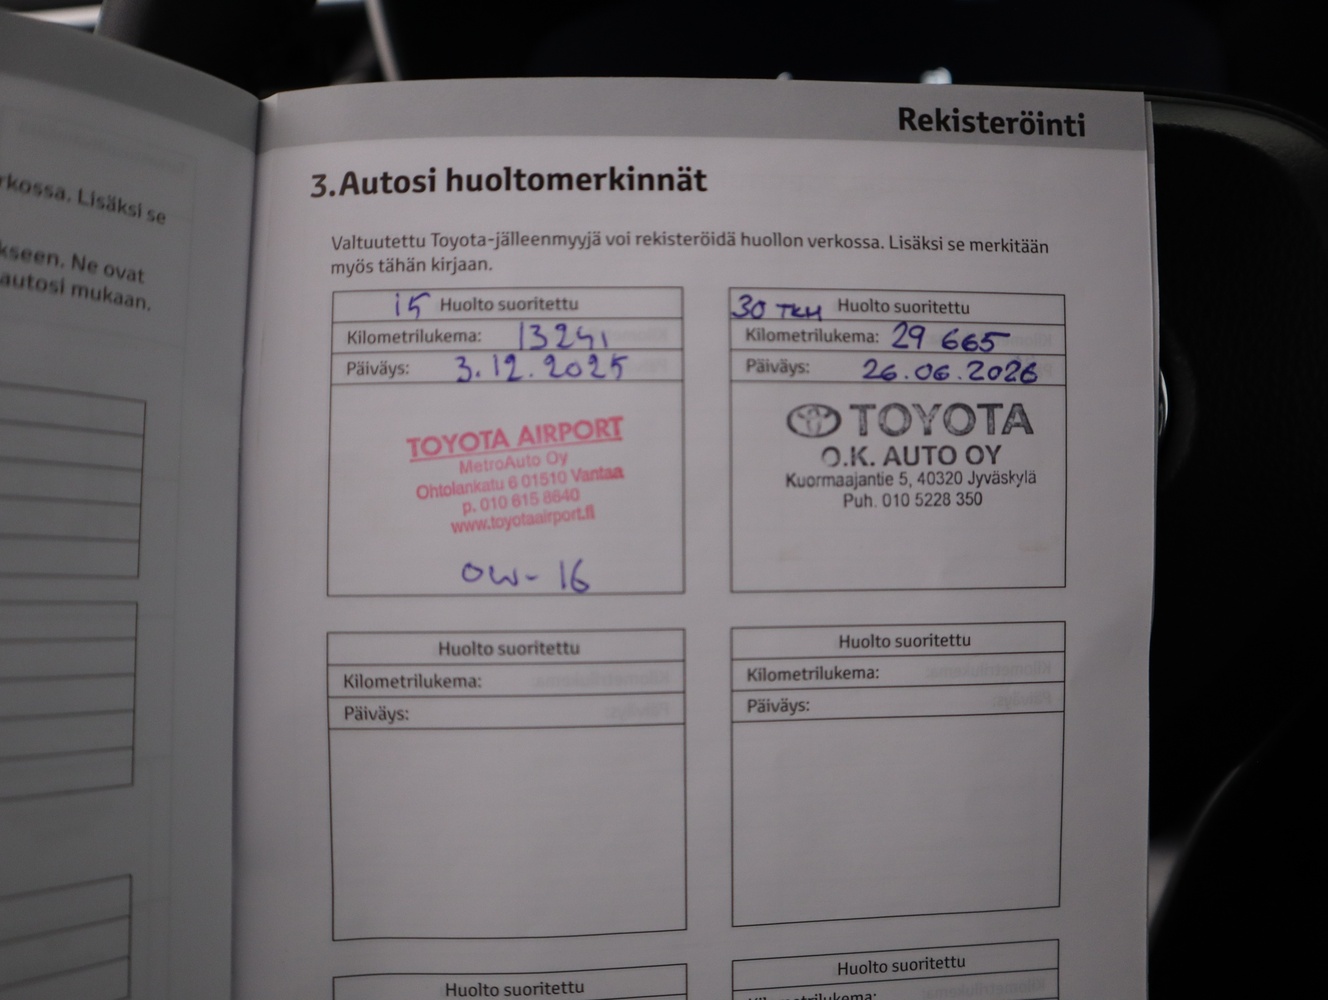 rkossa. Lisäksi se
kseen. Ne ovat
autosi mukaan.
Rekisteröinti
3.Autosi huoltomerkinnät
Valtuutettu Toyota-jälleenmyyjä voi rekisteröidä huollon verkossa. Lisäksi se merkitään
myös tähän kirjaan.
15 Huolto suoritettu
Kilometrilukema: 13241
Päiväys: 3.12.2025
TOYOTA AIRPORT
MetroAuto Oy
Ohtolankatu 6 01510 Vantaa
p. 010 615 8640
www.toyotaairport.fi
OW- 16
30 TKM Huolto suoritettu
Kilometrilukema: 29 665
Päiväys: 26.06.2026
TOYOTA
O.K. AUTO OY
Kuormaajantie 5, 40320 Jyväskylä
Puh. 010 5228 350
Huolto suoritettu
Kilometrilukema:
Päiväys:
Huolto suoritettu
Kilometrilukema:
Päiväys:
Huolto suoritettu
Huolto suoritettu